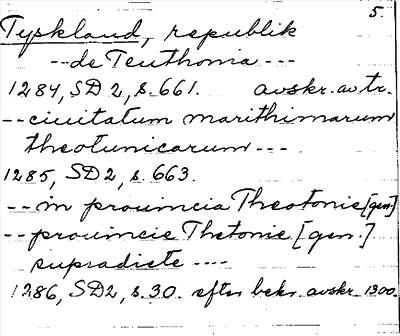 5.
Tyskland, republik
-- de Teuthonia ---
1284, SD 2, s. 661. avskr. av tr.
-- ciuitatum marithimarum
theotunicarum ---
1285, SD 2, s. 663.
-- in prouincia Theotonie [gen]
-- prouincie Thetonie [gen.]
supradicte ----
1286, SD2, s. 30. efter bekr. avskr. 1300.